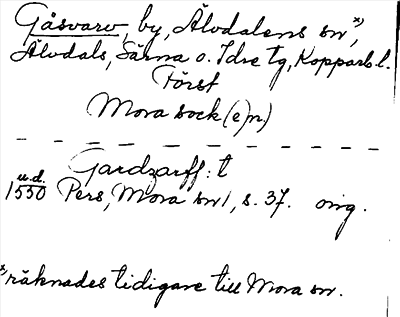 Gåsvarv, by, Älvdalens sn *),
Älvdals, Särna o. Idre tg, Kopparb. l.
Först
Mora sock(e)n)
Gardzarff: t
u.d.
1550 Pers, Mora sn 1, s. 37. orig.
*) räknades tidigare till Mora sn.